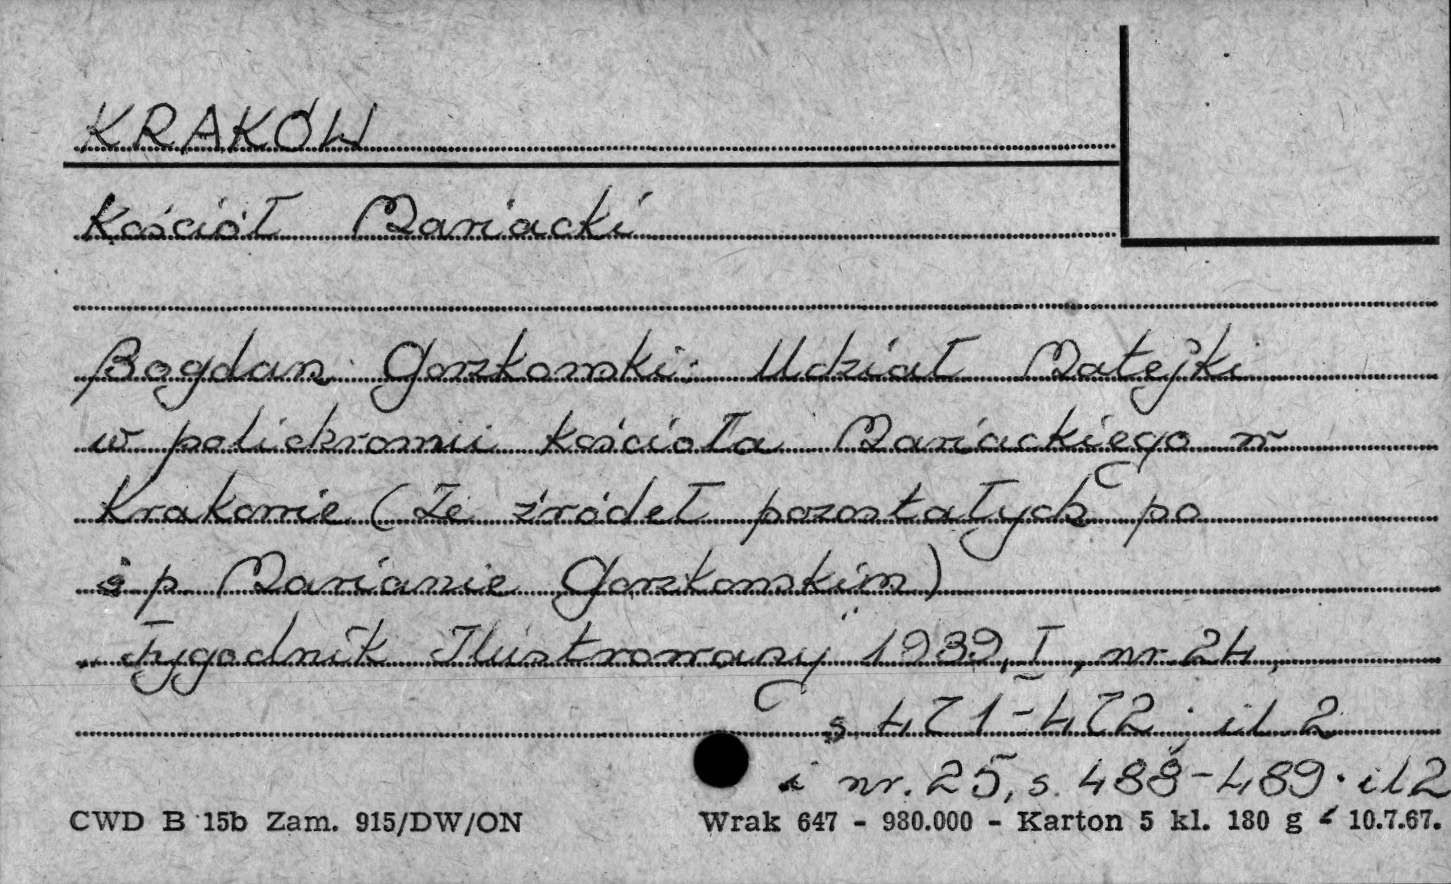 KRAKÓW
Kościół Mariacki
Bogdan Gorzkowski: Udział Matejki
w polichromii kościoła Mariackiego w
Krakowie (Ze źródeł pozostałych po
ś p. Marianie Gorzkowskim)
„Tygodnik Ilustrowany" 1939, I, nr. 24,
s. 471-472; il. 2
i nr. 25, s. 488-489. il 2
CWD B 15b Zam. 915/DW/ON
Wrak 647 - 980.000 - Karton 5 kl. 180 g - 10.7.67.